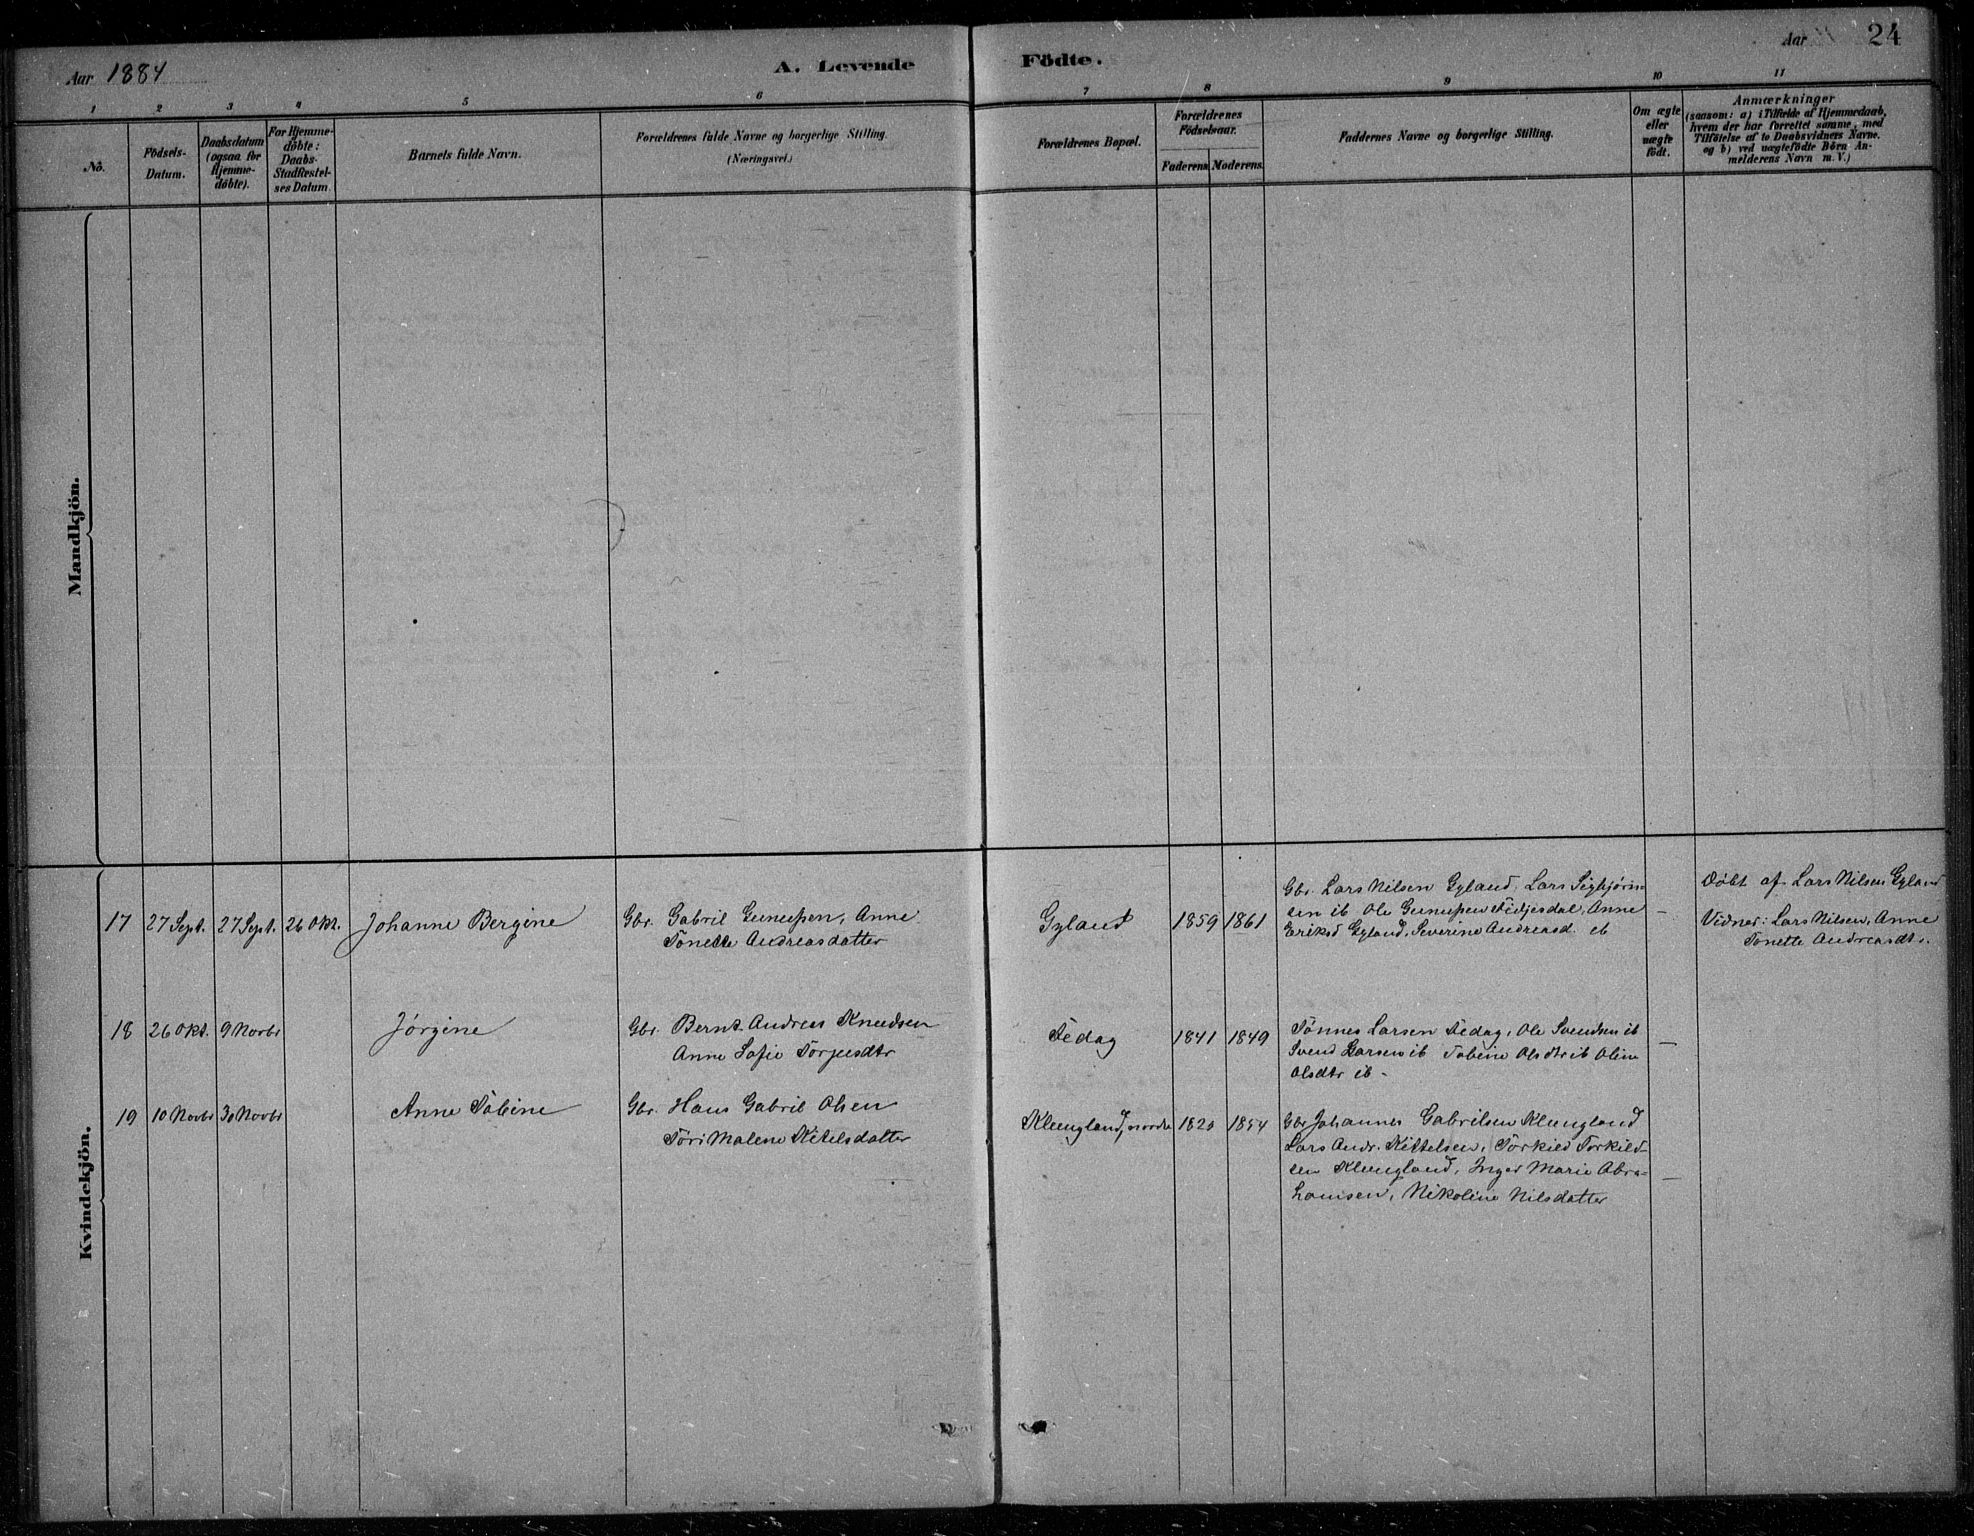 Aar 1884
A. Levende Födte.
Aar 24
1 2 3 4 5 6 7 8 9 10 11
No.
Födsels-Datum.
Daabsdatum (ogsaa for Hjemme-döbte).
For Hjemme-döbte: Daabs-Stadfæstel-ses Datum.
Barnets fulde Navn.
Forældrenes fulde Navne og borgerlige Stilling.
(Næringsvei.)
Forældrenes Bopæl.
Forældrenes Födselsaar.
Faderens. Moderens.
Faddernes Navne og borgerlige Stilling.
Om ægte eller uægte födt.
Anmærkninger
(saasom: a) i Tilfælde af Hjemmedaab,
hvem der har forrettet samme, med
Tilföielse af to Daabsvidners Navne.
og b) ved uægtefödte Börn An-
melderens Navn m. V.)
Mandkjön.
Kvindekjön.
17 27 Sept. 27 Sept. 26 Okt. Johanne Bergine
Gbr. Gabril Gunussen, Anne
Tonette Andreasdatter
Gyland 1859 1861
Gbr. Lars Nilsen Gyland, Lars Sigbjörn-
sen ib Ole Gunussen Fidjesdal, Anne
Eriksd Gyland, Severine Andreasd. ib
—
Döbt af Lars Nilsen Gyland
Vidner: Lars Nilsen, Anne
Tonette Andreasdt.
18 26 Okt. 9 Novbr Jörgine
Gbr. Bernt Andreas Knudsen
Anne Sofie Torjusdtr
Fedog 1841 1849
Tönnes Larsen Fedog, Ole Svendsen ib
Svend Larsen ib Tobine Olsdtr ib Oline
Olsdtr ib -
—
19 10 Novbr 30 Novbr Anne Tobine
Gbr. Hans Gabril Olsen
Töri Malene Kitelsdatter
Klungland, nordre 1820 1854
Gbr Johannes Gabrilsen Klungland
Lars Andr. Kittelsen, Torkild Torkild-
sen Klungland, Inger Marie Abra-
hamsen, Nikoline Nilsdatter
—